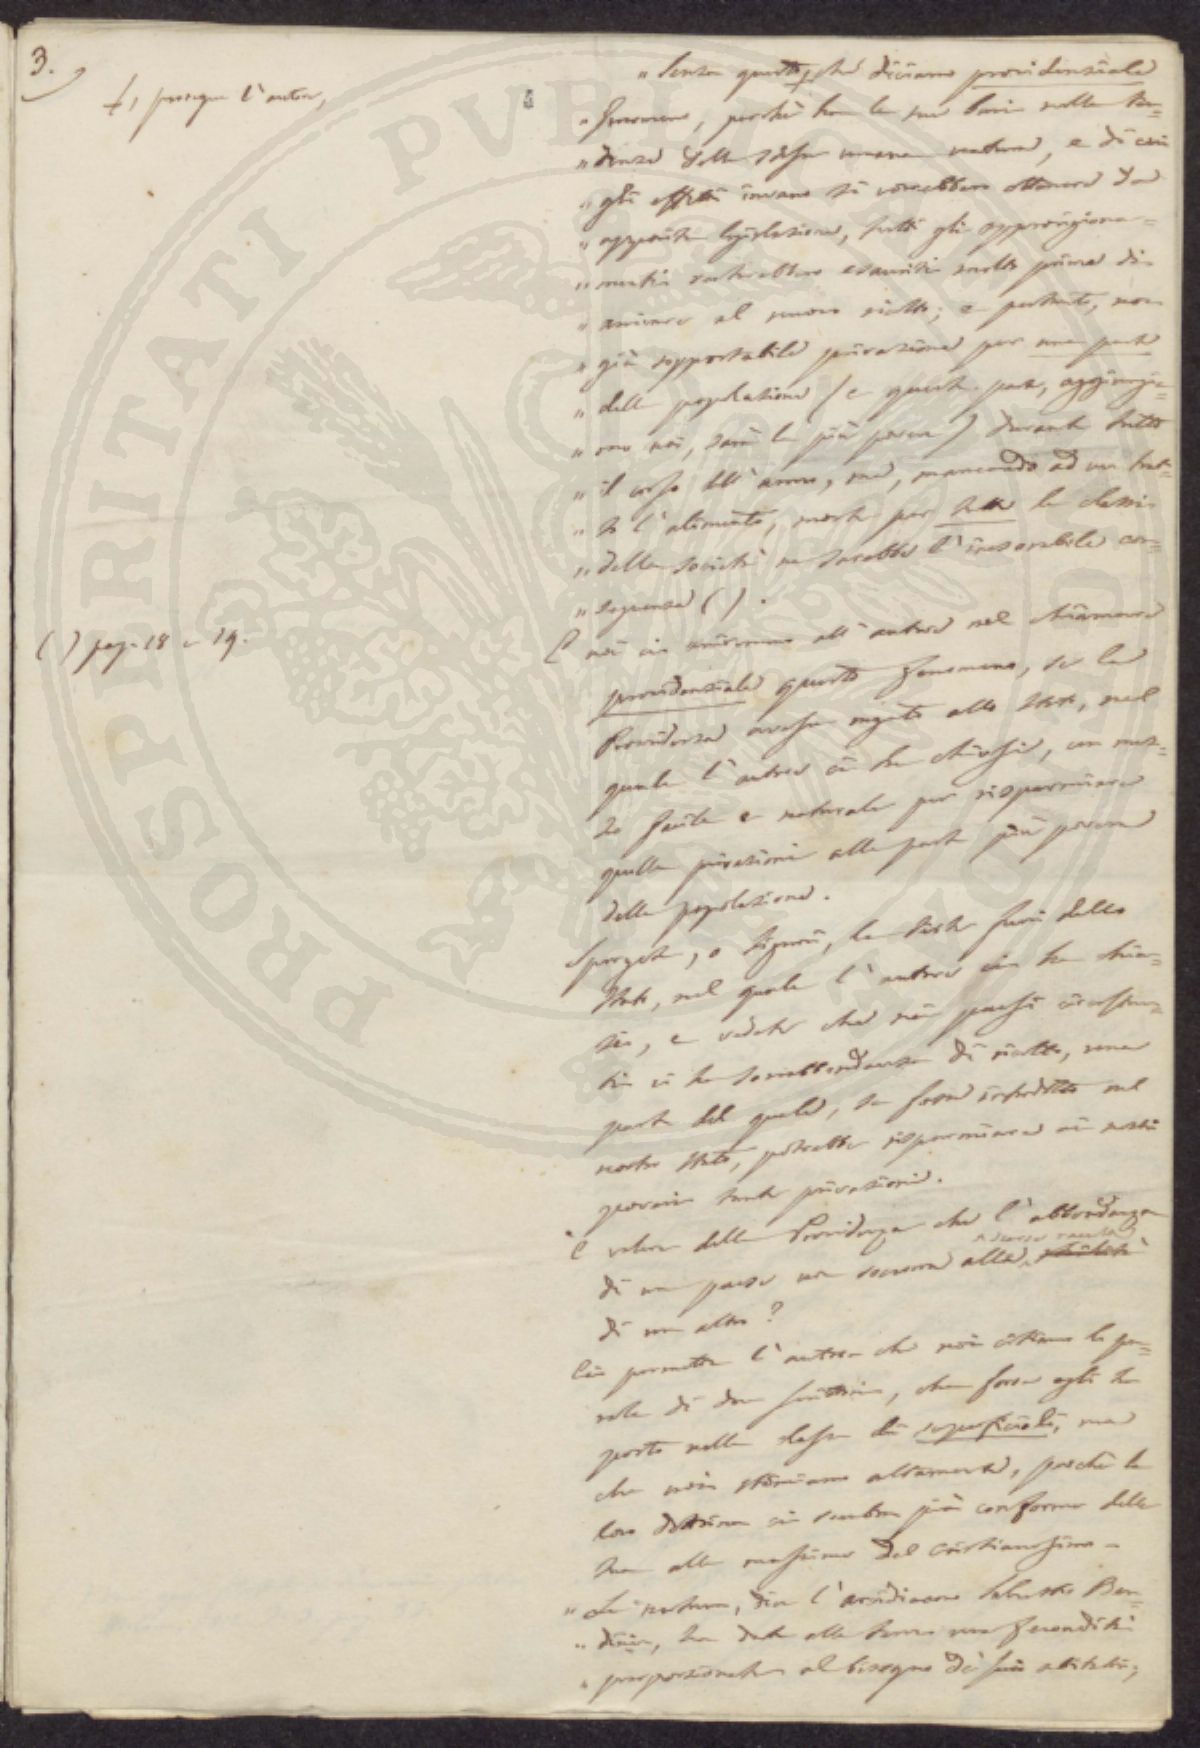 3.
+, prosegue l'autore,
" Senza questo, che diciamo providenziale
" fenomeno, perchè ha le sue basi nella ten=
" denza della stessa umana natura, e di cui
" gli effetti invano si vorrebbero ottenere da
" apposita legislazione, tutti gli approvigiona=
" menti resterebbero esauriti molto prima di
" arrivare al nuovo raccolto; e pertanto, non
" già sopportabile privazione per una parte
" della popolazione (e questa parte, aggiungia=
" mo noi, sarà la più povera) durante tutto
" il corso dell'anno, ma, mancando ad un trat=
" to l'alimento, morte per tutte le classi
" della società ne sarebbe l'inesorabile con=
" seguenza ( ).
( ) pag. 18 e 19.
E noi ci uniremmo all'autore nel chiamare
providenziale questo fenomeno, se la
Providenza avesse negato allo Stato, nel
quale l'autore ci ha chiusi, un mez=
zo facile e naturale per risparmiare
quelle privazioni alla parte più povera
della popolazione.
Sporgete, o Signori, la testa fuori dello
Stato, nel quale l'autore ci ha chiu=
si, e vedete che nei paesi circostan=
ti vi ha sovrabbondanza di raccolto, una
parte del quale, se fosse introdotto nel
nostro Stato, potrebbe risparmiare ai nostri
poveri tante privazioni.
È volere della Providenza che l'abbondanza
di un paese non soccorra alla scarsa raccolta
di un altro?
Ci permetta l'autore che noi citiamo le pa=
role di due scrittori, che forse egli ha
posto nella classe dei superficiali, ma
che noi stimiamo altamente, perchè la
loro dottrina ci sembra più conforme della
sua alle massime del Cristianesimo –
" La natura, dice l'arcidiacono Salustio Ban=
" dini, ha dato alla terra una fecondità
" proporzionata al bisogno de' suoi abitatori;